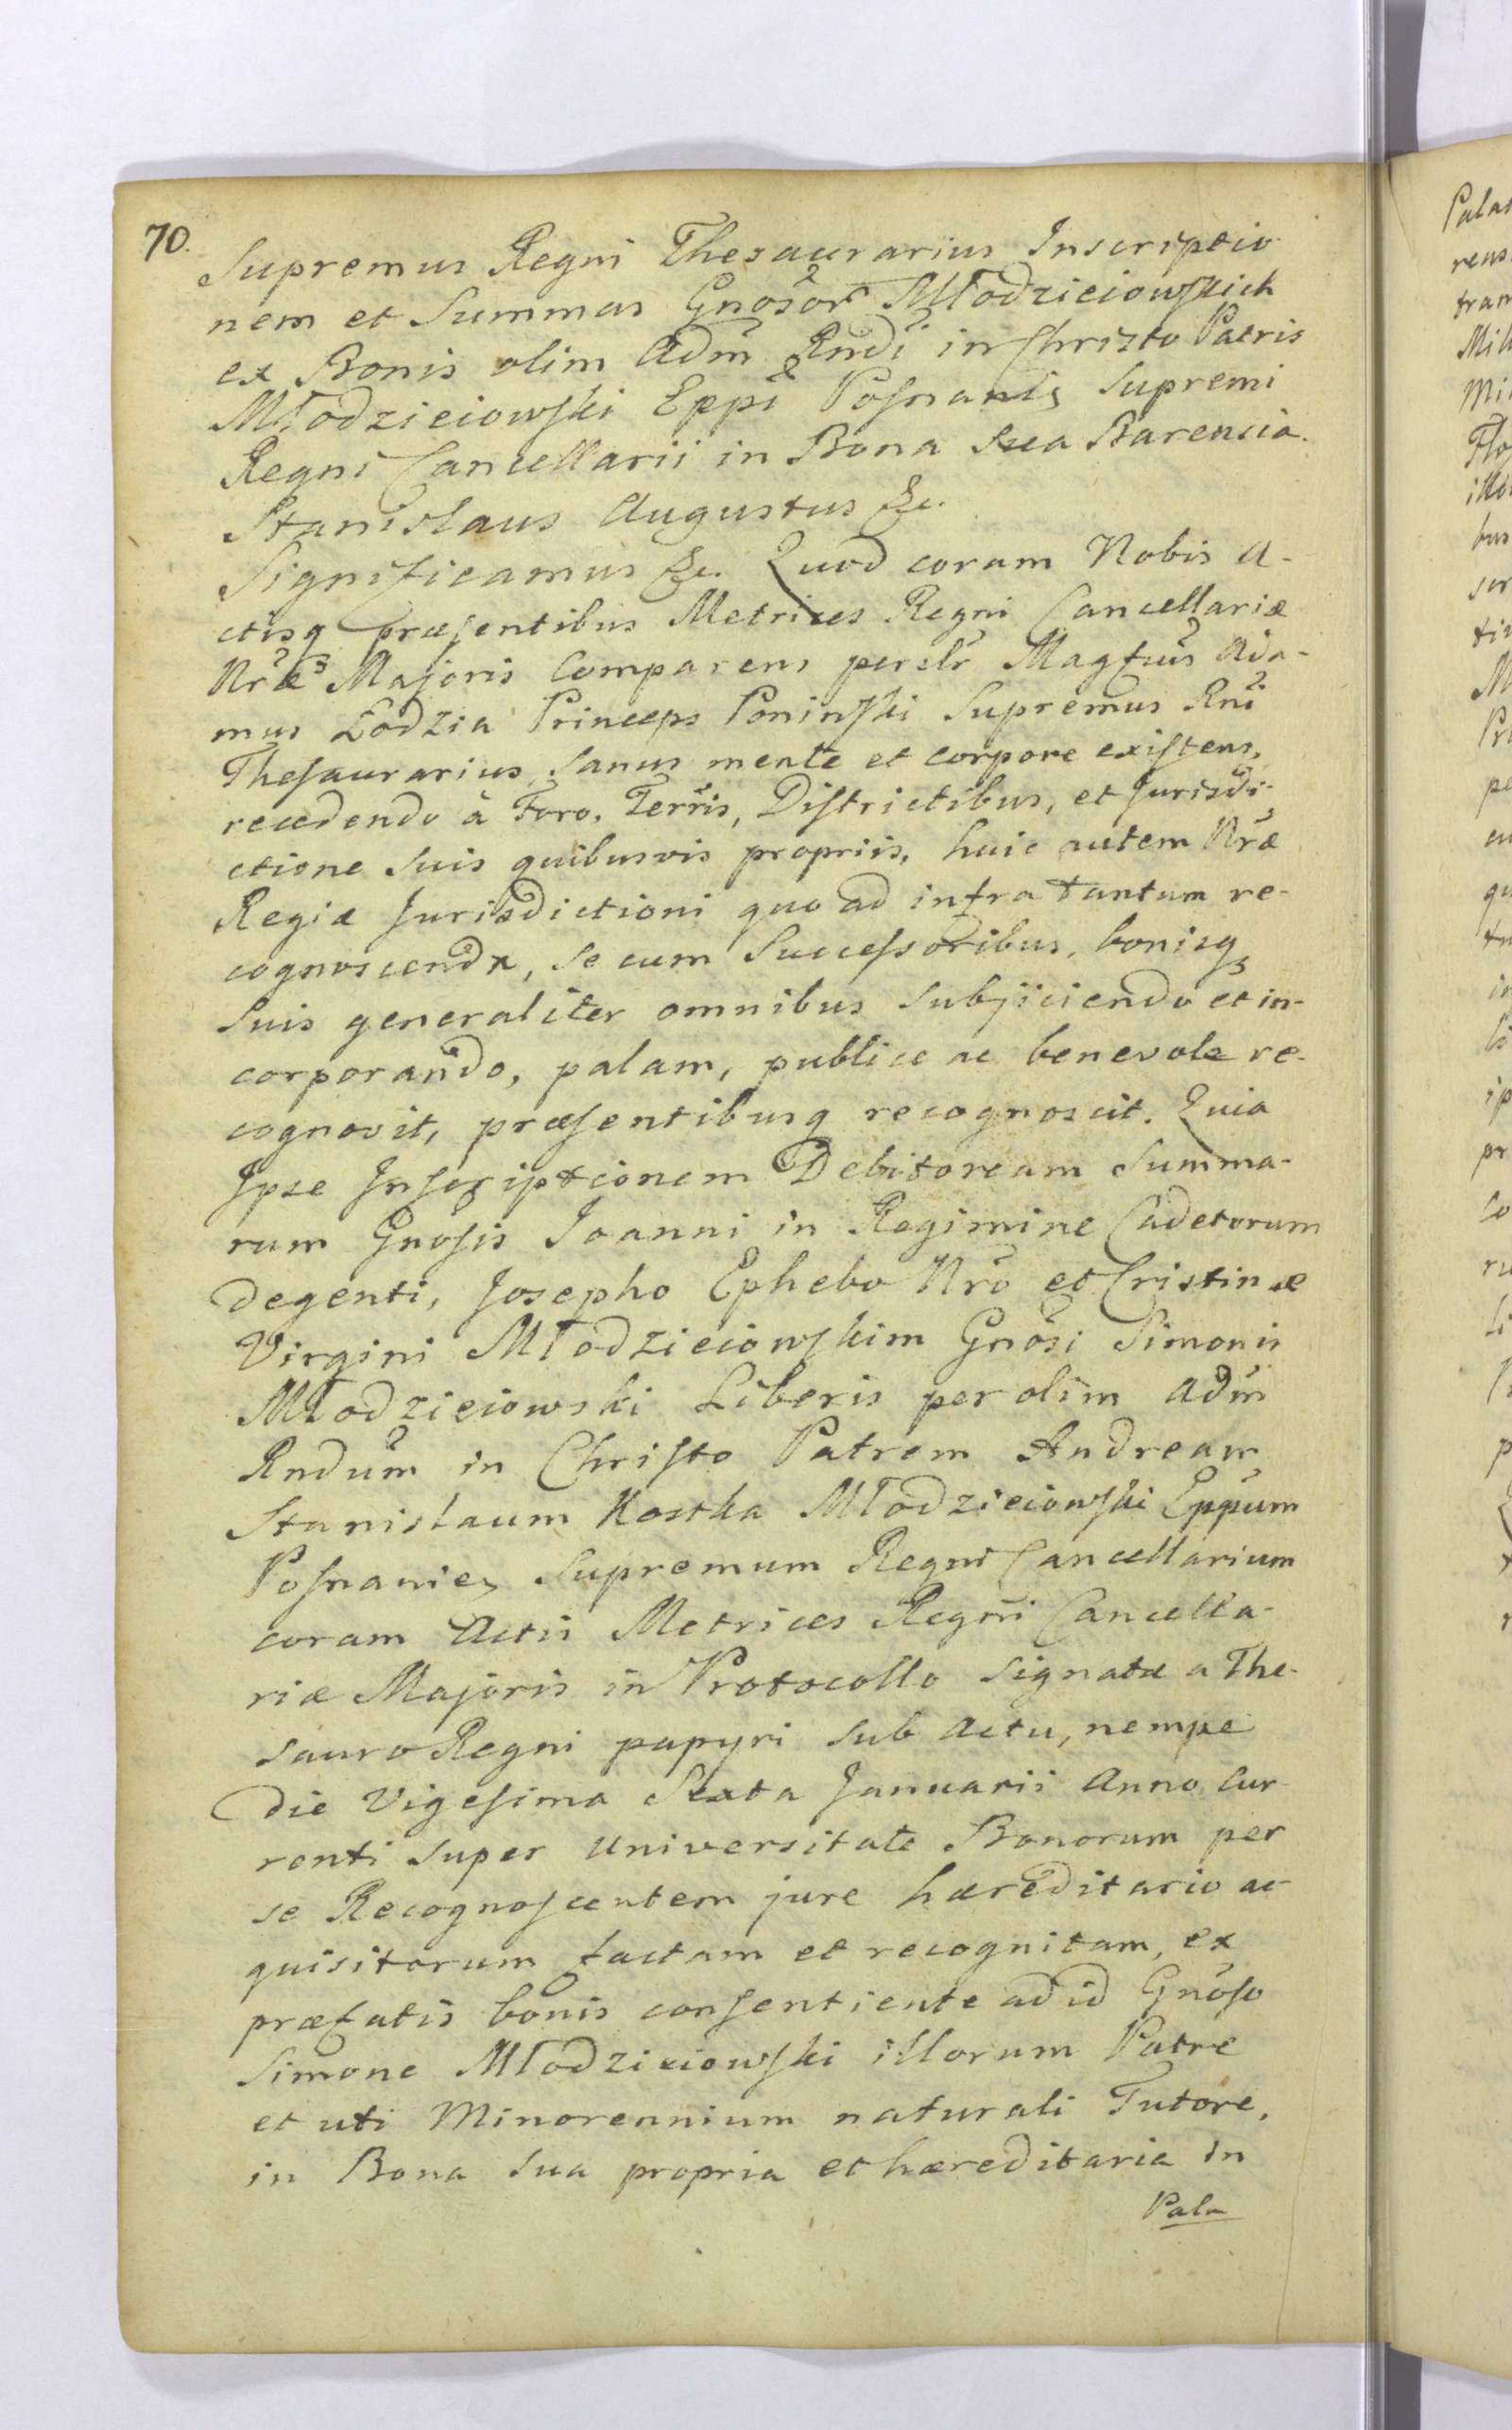 70.
Supremus Regni Thesaurarius Inscriptio
nem et Summas Gnosor Młodzieiowskich
ex Bonis olim Adm Rndi in Christo Patris
Młodzieiowski Eppi Posnanis Supremi
Regni Cancellarii in Bona sua Barencia.
Stanislaus Augustus &c.
Significamus &c. Quod coram Nobis A-
ctisq præsentibus Metrices Regni Cancellariæ
Nræ Majoris Comparens perslr Magfcus Ada-
mus Łodzia Princeps Poninski Supremus Rni
Thesaurarius, sanus mente et corpore existens,
recedendo à Foro, Terris, Districtibus, et Jurisdi-
ctione suis quibusvis propriis, huic autem Nræ
Regiæ Jurisdictioni quo ad infra tantum re-
cognoscenda, se cum Successoribus, bonisq
suis generaliter omnibus subjiciendo et in-
corporando, palam, publice ac benevole re-
cognovit, præsentibusq recognoscit. Quia
Ipse Inscriptionem Debitoream Summa-
rum Gnosis Joanni in Regimine Cadetorum
degenti, Josepho Ephebo Nro et Cristinæ
Virgini Młodzieiowskim Gnosi Simonis
Młodzieiowski Liberis per olim Adm
Rndum in Christo Patrem Andream
Stanislaum Kostka Młodzieiowski Eppum
Posnanie, Supremum Regni Cancellarium
coram Actis Metrices Regni Cancella-
riæ Majoris in Protocollo signatæ a The-
sauro Regni papyri sub actu, nempe
die Vigesima Sexta Januarii Anno Cur-
renti super Universitate Bonorum per
se Recognoscentem jure hæreditario ac-
quisitorum factam et recognitam, ex
præfatis bonis consentiente ad id Gnoso
Simone Młodzieiowski illorum Patre
et uti Minorennium naturali Tutore,
in Bona sua propria et hæreditaria in
Pala